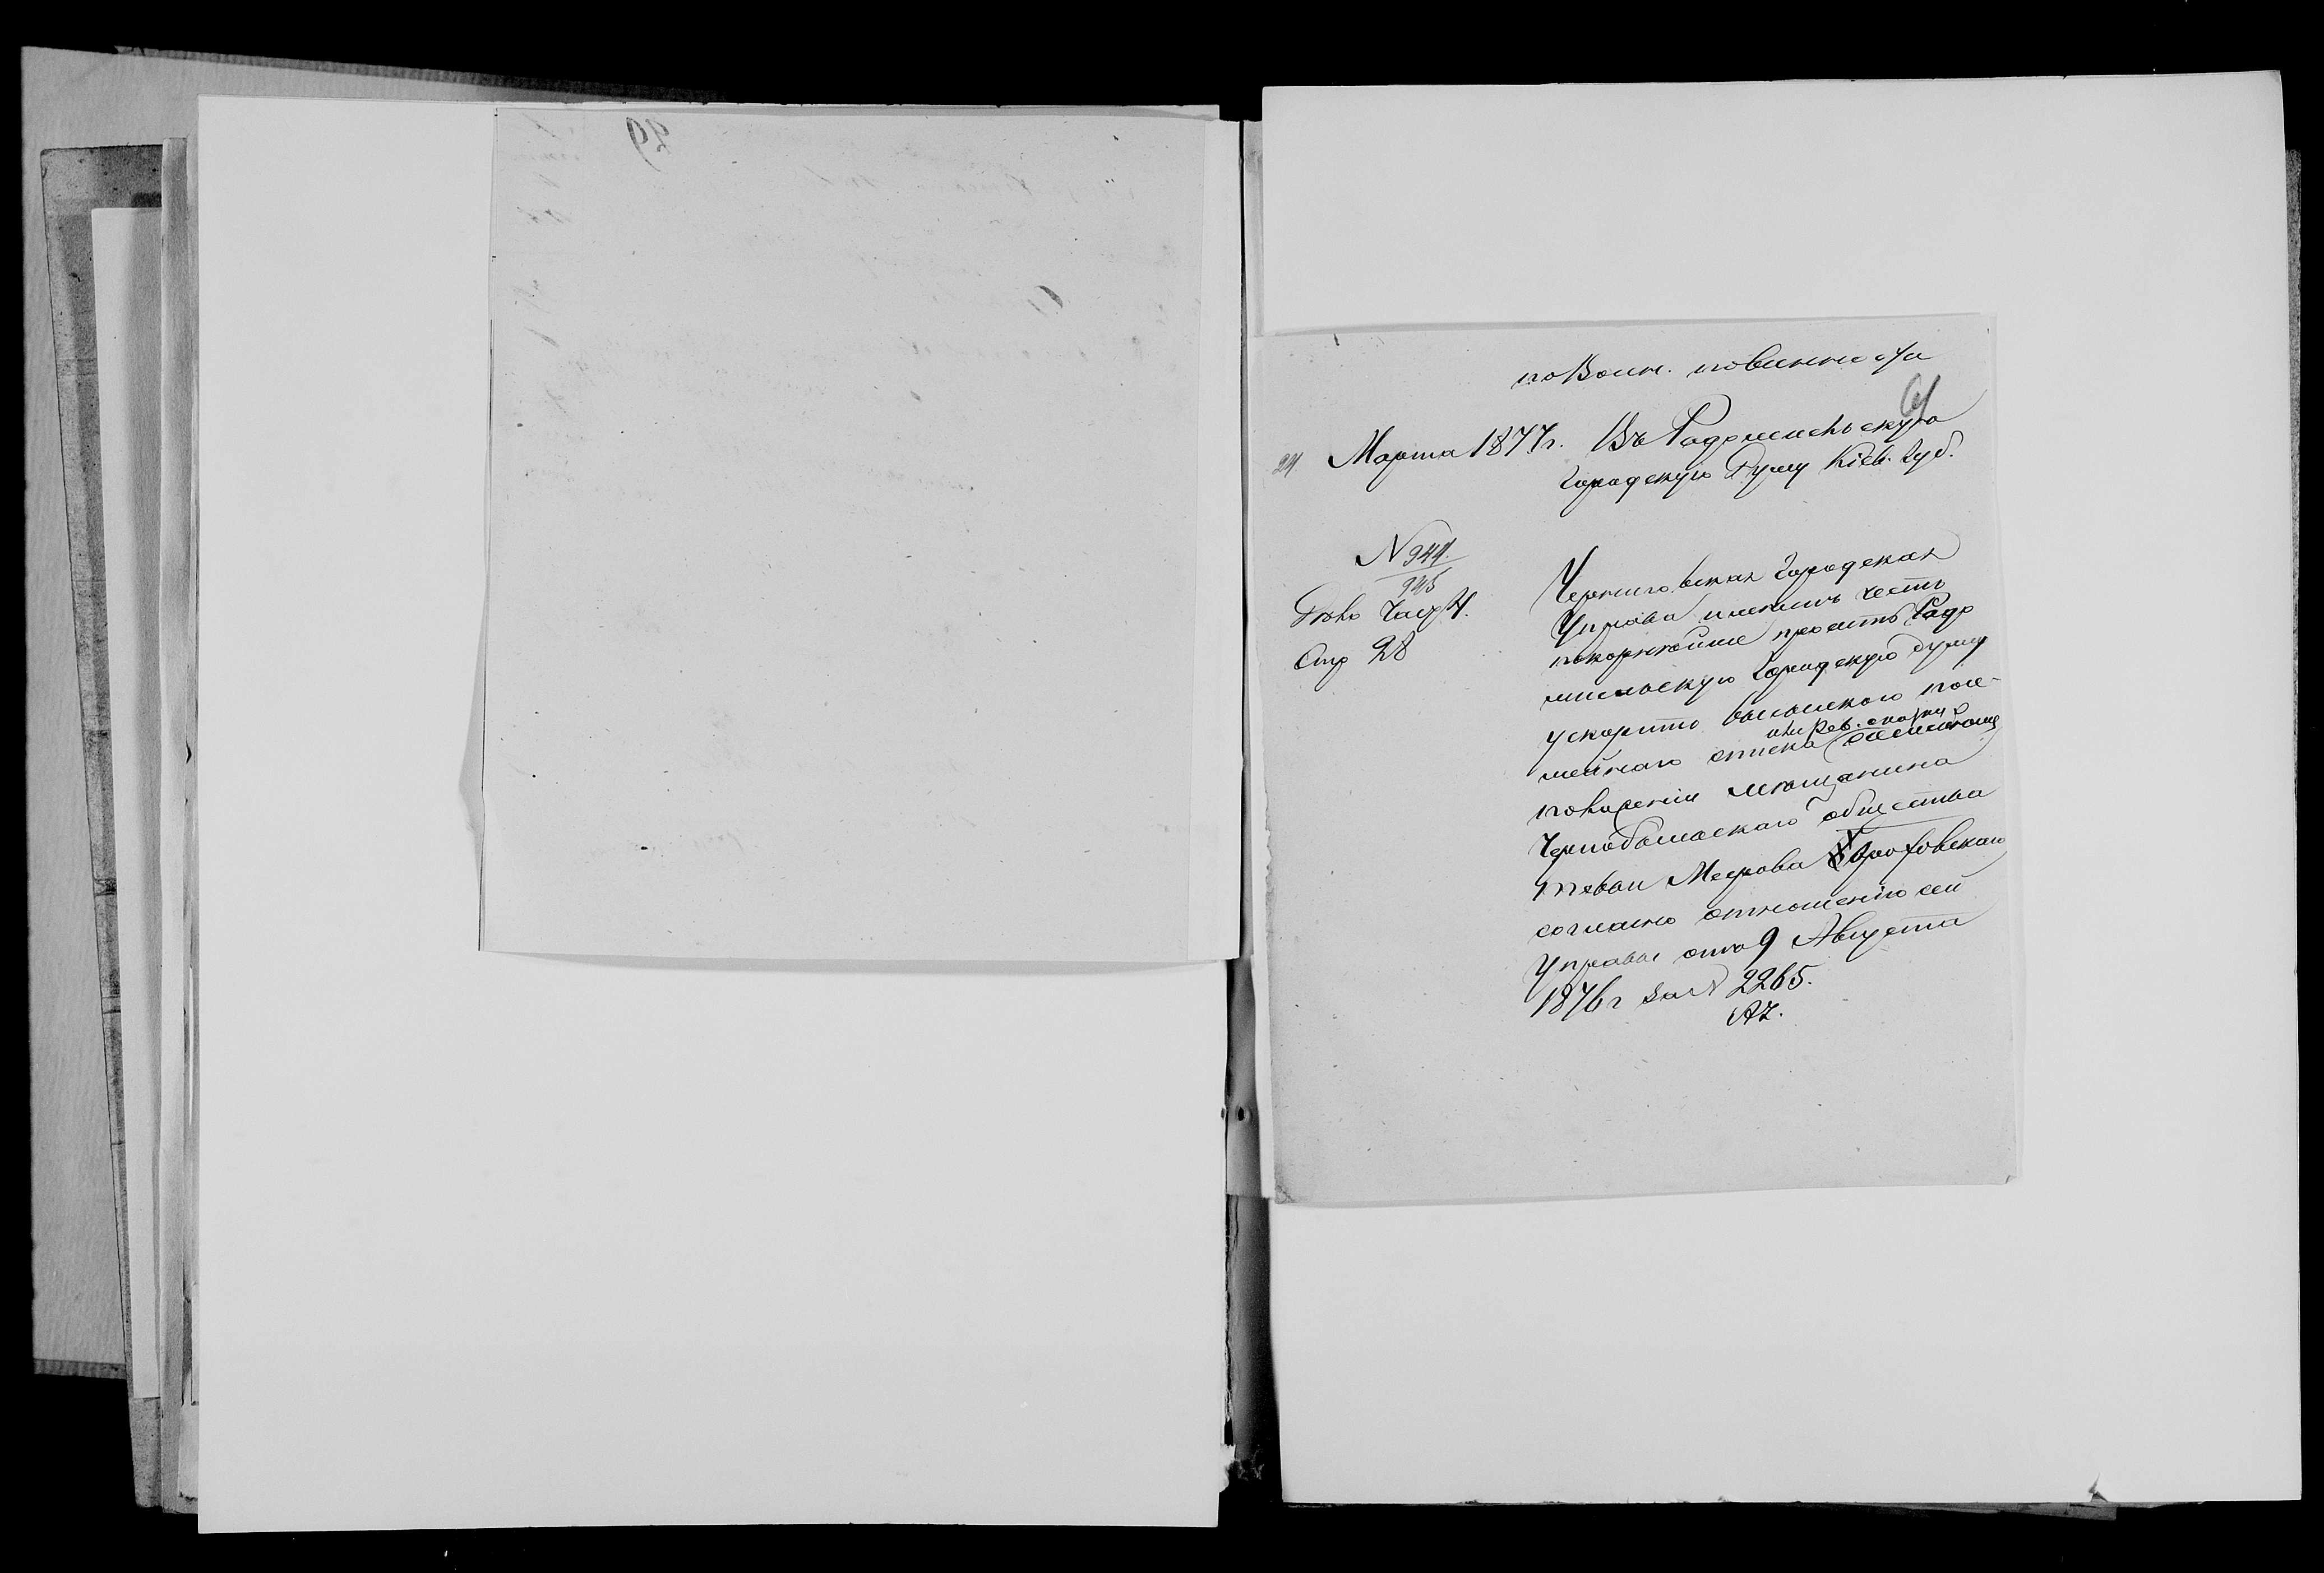 по Воин. повинности
61
24 Марта 1877 г. Въ Радомысльскую
Городскую Думу Кіев. Губ.
N 944.
945
Дѣло Част 4.
Стр 28
Черниговская Городская
Управа имѣетъ честь
покорнѣйше просить Радо
мысльскую Городскую думу
ускорить высылкою посе-
мейнаго списка или Рев. сказки о семейномъ
положеніи мѣщанина
Чернобыльскаго общества
Меерова
согласно отношенію сей
Управы отъ 9 Августа
1876 г за N 2265.